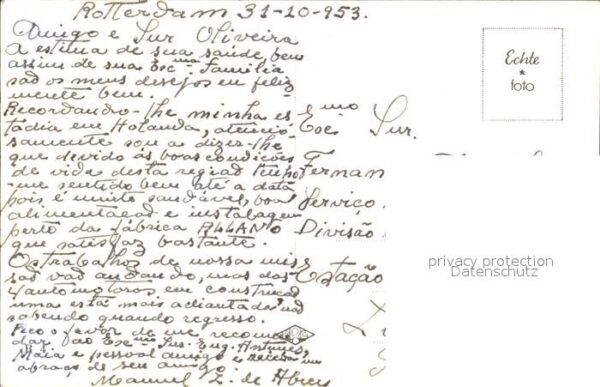 Rotterdam 31-10-953.
Amigo e Sur Oliveira
A estima de sua saúde, bem
assim de sua Exc.ma Familia
são os meus desejos eu feliz-
mente bem.
Recordando-lhe minha es
tadia em Holanda, atencio
samente sou a dizer-lhe
que devido ás boas condições
de vida desta região tenho
-me sentido bem até a data
pois é muito saudável, boa
alimentação e instalagem
perto da fábrica ALLAN o
que satisfaz bastante.
Os trabalhos de nossa mis
são vão andando, mas das
automotoras em construção
uma está mais adiantada, não
sabendo quando regresso.
Peço o favor de me recomen
dar ao Exc.mo Sur. Eng. Antunes,
Maia e pessoal amigo e receba um
abraço de seu amigo
Manuel Z. de Abreu
Exmo
Sur.
Fernan
Serviço
Divisão
Estação
Echte
foto
privacy protection
Datenschutz